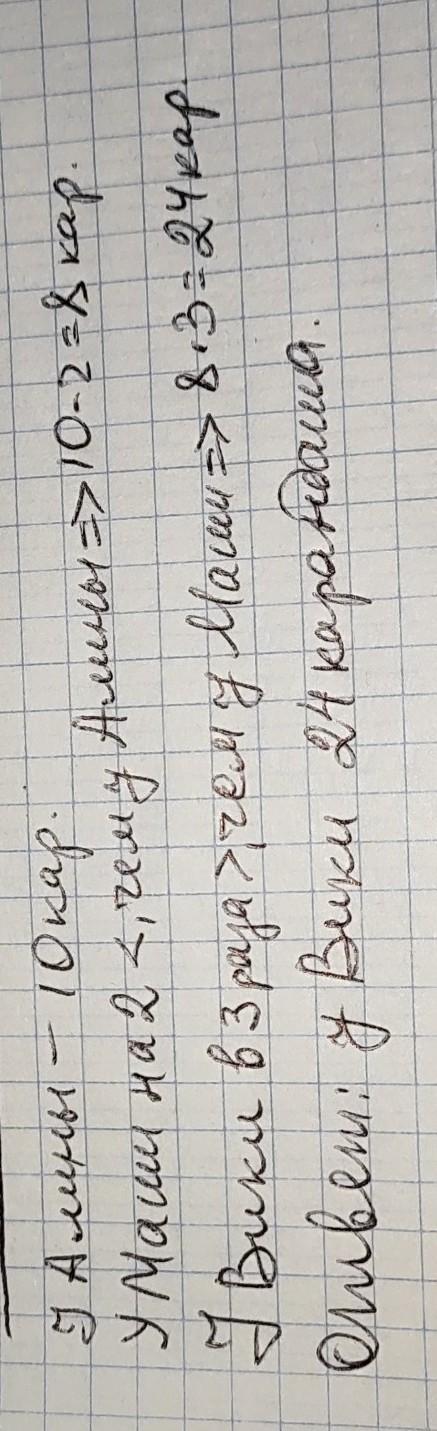 У Алины – 10 кар.
У Маши на 2 <, чем у Алины => 10-2=8 кар.
У Вики в 3 раза >, чем у Маши => 8·3=24 кар.
Ответ: у Вики 24 карандаша.